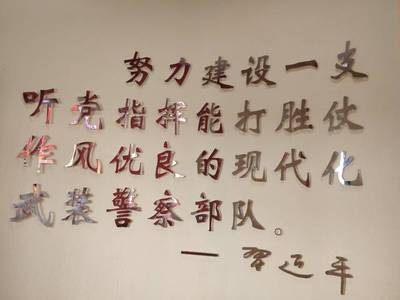 努力建设一支
听党指挥能打胜仗
作风优良的现代化
武装警察部队。
一习近平